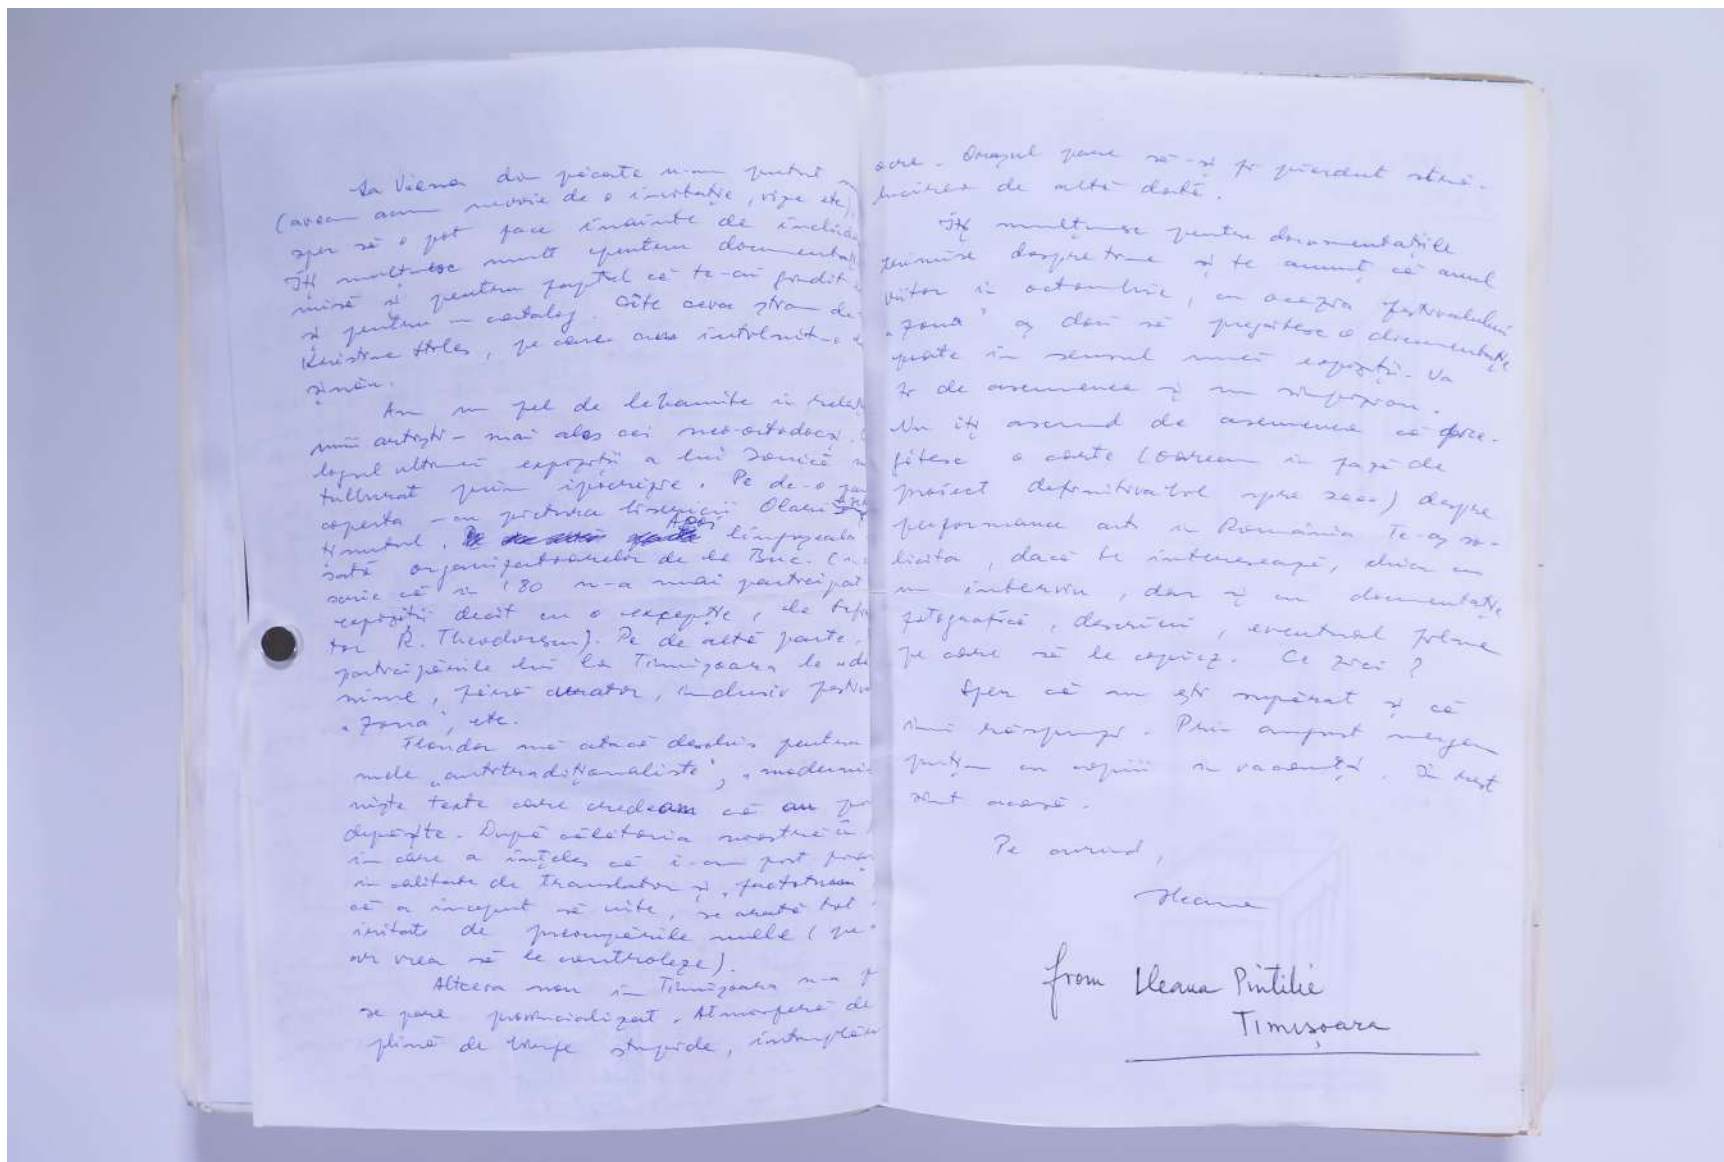 La Viena din păcate n-am putut
(aveam acum nevoie de o invitație, vize etc),
sper să o pot face înainte de
Îți mulțumesc mult pentru
și pentru faptul că te-ai gîndit
și pentru un catalog. Cîte ceva știam de
Kristine Stiles, pe care am întîlnit-o
Am un fel de în
unii artiști – mai ales cei neo-ortodocși.
ultimei expoziții a lui Ionică
tulburat prin ipocrizie. Pe de-o
coperta – cu pictura bisericii Olari
ținutul, Apoi
organizatoarelor de la Buc.
scrie că în '80 n-a mai participat
expoziții decît cu o excepție, de
R. Theodorescu). Pe de altă parte,
participările lui la Timișoara le
nime, fără curator, inclusiv
"Zona", etc.
Flondor mă atacă deschis pentru
mele "antitradiționaliste",
niște texte care credeam că au
depășite. După călătoria noastră
în care a înțeles că i-am fost
în calitate de translator și "factotum"
că a început să uite, se arată tot
iritat de preocupările mele
ar vrea să le controleze).
Altceva nou în Timișoara n-a
se pare provincializat. Atmosfera de
plină de bîrfe stupide,
acre. Orașul pare să-și fi pierdut stră-
lucirea de altă dată.
Îți mulțumesc pentru documentațiile
trimise despre tine și te anunț că anul
viitor în octombrie, cu ocazia festivalului
"Zona" aș dori să pregătesc o documentație
poate în sensul unei expoziții. Va
fi de asemenea și un simpozion.
Nu îți ascund de asemenea că pre-
gătesc o carte (oarecum în fază de
proiect definitivabil spre 2000) despre
performance art în România. Te-aș so-
licita, dacă te interesează, chiar cu
un interviu, dar și cu documentație
fotografică, descrieri, eventual filme
pe care să le copiez. Ce zici?
Sper că nu ești supărat și că
îmi răspunzi. Prin august mergem
puțin cu copiii în vacanță. În rest
sînt acasă.
Pe curînd,
Ileana
from Ileana Pintilie
Timișoara